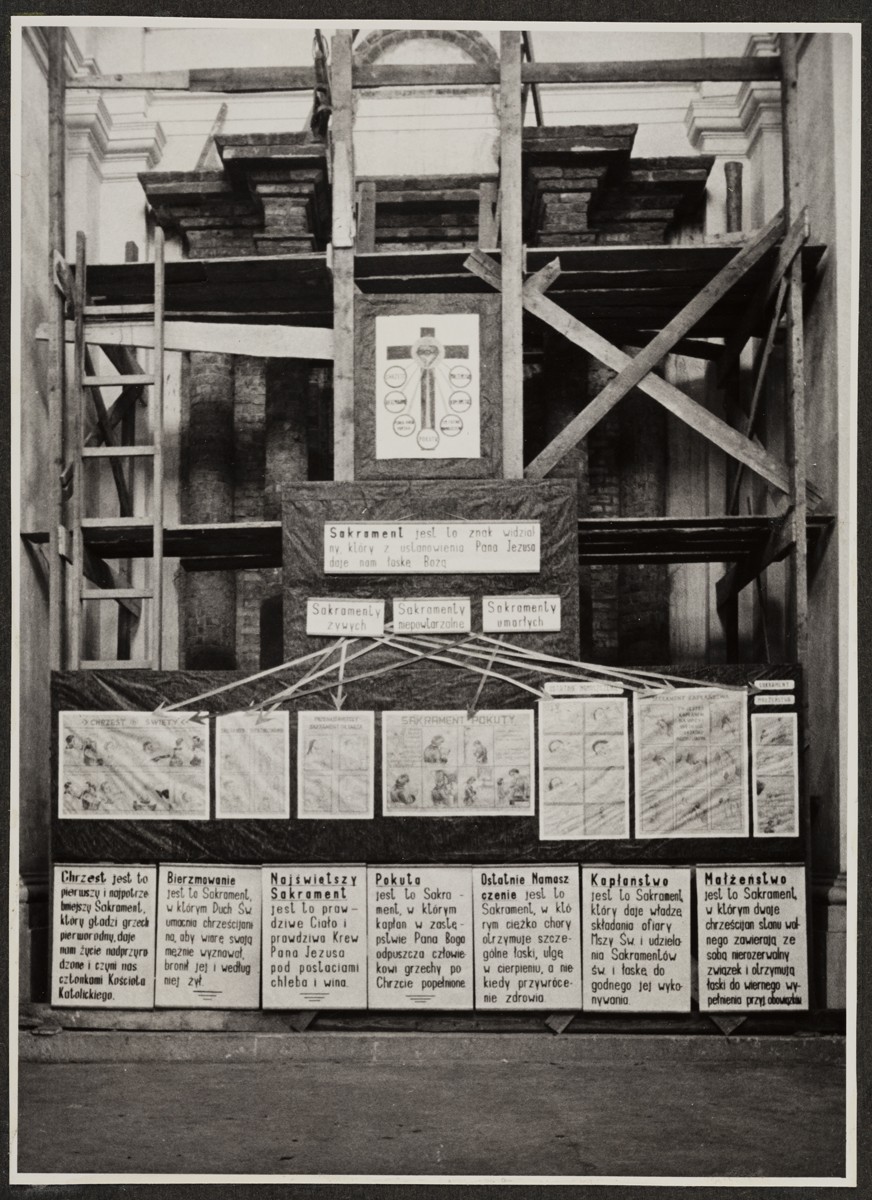 POKUTA
Sakrament jest to znak widzial
ny, który z ustanowienia Pana Jezusa
daje nam łaskę Bożą
Sakramenty
żywych
Sakramenty
niepowtarzalne
Sakramenty
umarłych
CHRZEST ŚWIĘTY
SAKRAMENT POKUTY
OSTATNIE
SAKRAMENT
MAŁŻEŃSTWA
SAKRAMENT KAPŁAŃSTWA
Chrzest jest to
pierwszy i najpotrze
bniejszy Sakrament,
który gładzi grzech
pierworodny, daje
nam życie nadprzyro
dzone i czyni nas
członkami Kościoła
Katolickiego.
Bierzmowanie
jest to Sakrament,
w którym Duch Św.
umacnia chrześcijani
na, aby wiarę swoją
mężnie wyznawał,
bronił jej i według
niej żył.
Najświętszy
Sakrament
jest to praw-
dziwe Ciało i
prawdziwa Krew
Pana Jezusa
pod postaciami
chleba i wina.
Pokuta
jest to Sakra-
ment, w którym
kapłan w zastę-
pstwie Pana Boga
odpuszcza człowie-
kowi grzechy po
Chrzcie popełnione
Ostatnie Namasz
czenie jest to
Sakrament, w któ
rym ciężko chory
otrzymuje szcze-
gólne łaski, ulgę
w cierpieniu, a nie
kiedy przywróce-
nie zdrowia.
Kapłaństwo
jest to Sakrament,
który daje władzę
składania ofiary
Mszy Św. i udziela-
nia Sakramentów
św. i łaskę do
godnego jej wyko-
nywania.
Małżeństwo
jest to Sakrament,
w którym dwoje
chrześcijan stanu wol-
nego zawierają ze
sobą nierozerwalny
związek i otrzymują
łaski do wiernego wy-
pełnienia przyj. obowiązków